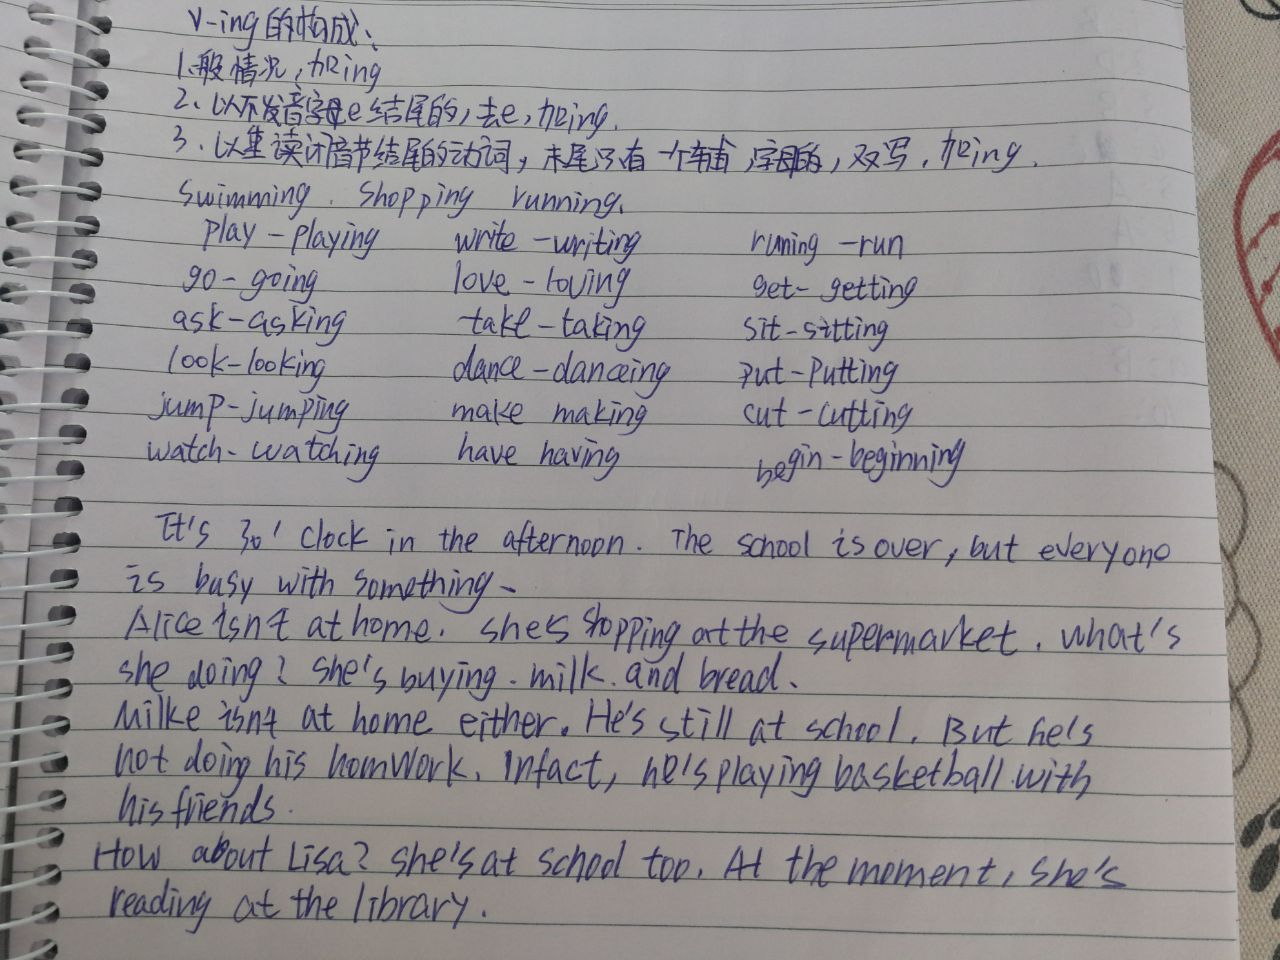 V-ing的构成、
1、般情况,加ing
2、以不发音字母e结尾的,去e,加ing.
3、以重读闭音节结尾的动词,末尾只有一个辅字母的,双写,加ing.
swimming. shopping running.
play-playing write-writing runing-run
go-going love-loving get-getting
ask-asking take-taking sit-sitting
look-looking dance-danceing put-putting
jump-jumping make making cut-cutting
watch-watching have having begin-beginning
It's 3o' clock in the afternoon. The school is over, but everyone
is busy with something-
Alice isn't at home. she's shopping at the supermarket. what's
she doing? she's buying. milk. and bread.
Milke isn't at home either. He's still at school. But he's
not doing his homWork. Infact, he's playing basketball with
his friends.
How about Lisa? she's at school too. At the moment, she's
reading at the library.